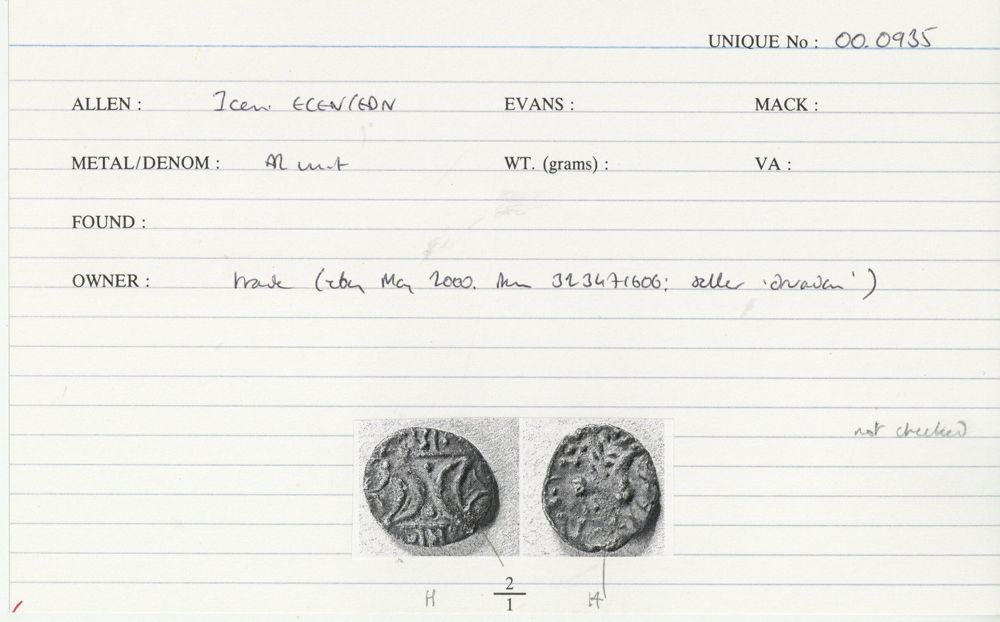 UNIQUE No : 00.0935
ALLEN : Iceni ECEN/EDN EVANS : MACK :
METAL/DENOM : AR unit WT. (grams) : VA :
FOUND :
OWNER : trade (ebay May 2000. Item 323471606; seller
not checked
H 2/1 H